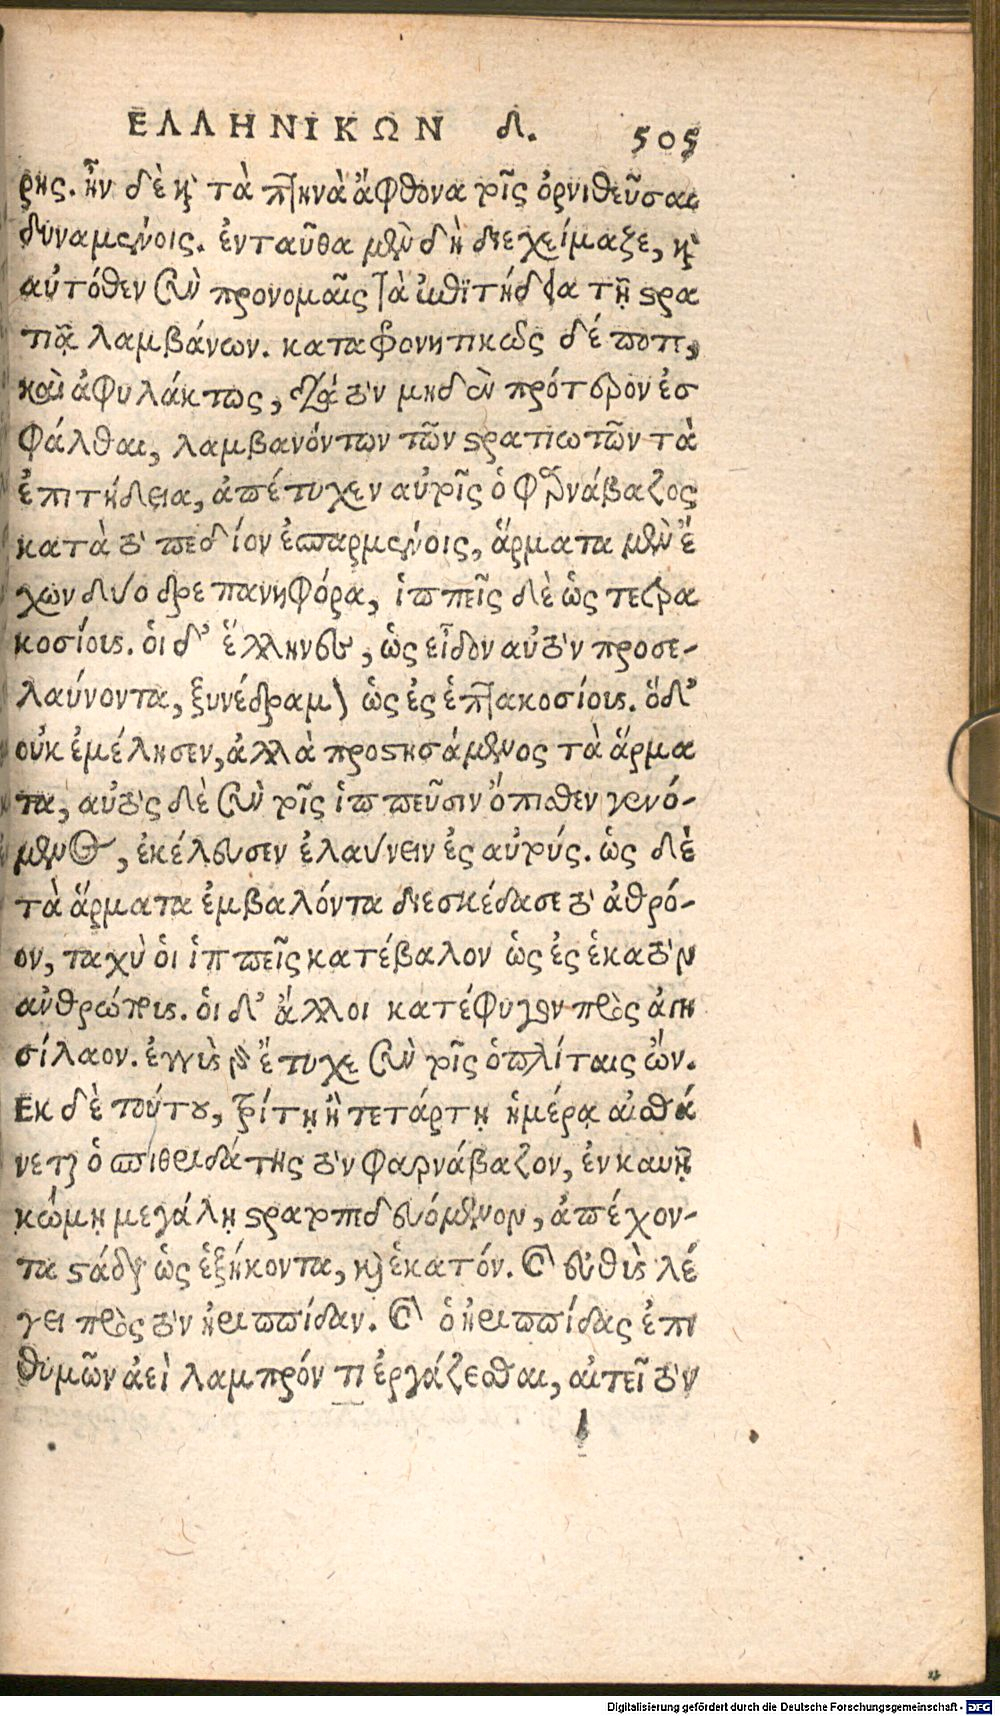 ΕΛΛΗΝΙΚΩΝ δ. 505
ρης. ἦν δὲ καὶ τὰ πτηνὰ ἄφθονα τοῖς ὀρνιθεῦσαι
δυναμένοις. ἐνταῦθα μὲν δὴ διεχείμαζε, καὶ
αὐτόθεν σὺν προνομαῖς τὰ ἐπιτήδεια τῇ στρα
τιᾷ λαμβάνων. καταφρονητικῶς δέ ποτε,
καὶ ἀφυλάκτως, διὰ τὸ μηδὲν πρότερον ἐσ
φάλθαι, λαμβανόντων τῶν στρατιωτῶν τὰ
ἐπιτήδεια, ἀπέτυχεν αὐτοῖς ὁ Φαρνάβαζος
κατὰ τὸ πεδίον ἐσπαρμένοις, ἅρματα μὲν ἔ
χων δύο δρεπανηφόρα, ἱππεῖς δὲ ὡς τετρα
κοσίους. οἱ δ' ἕλληνες, ὡς εἶδον αὐτὸν προσε-
λαύνοντα, ξυνέδραμον ὡς ἐς ἑπτακοσίους. ὅδ'
οὐκ ἐμέλησεν, ἀλλὰ προστησάμενος τὰ ἅρμα
τα, αὐτὸς δὲ σὺν τοῖς ἱππεῦσιν ὄπισθεν γενό-
μενος, ἐκέλευσεν ἐλαύνειν ἐς αὐτούς. ὡς δὲ
τὰ ἅρματα ἐμβαλόντα διεσκέδασε τὸ ἀθρό-
ον, ταχὺ οἱ ἱππεῖς κατέβαλον ὡς ἐς ἑκατὸν
ἀνθρώπους. οἱ δ' ἄλλοι κατέφυγον πρὸς ἀγη
σίλαον. ἐγγὺς γὰρ ἔτυχε σὺν τοῖς ὁπλίταις ὤν.
Εκ δὲ τούτου, τρίτῃ ἢ τετάρτῃ ἡμέρᾳ αἰσθά
νεται ὁ σπιθριδάτης τὸν φαρνάβαζον, ἐν καυῇ
κώμῃ μεγάλῃ στρατοπεδευόμενον, ἀπέχον-
τα στάδια ὡς ἑξήκοντα, καὶ ἑκατόν. καὶ εὐθὺς λέ
γει πρὸς τὸν ἡριππίδαν. καὶ ὁ ἡριππίδας ἐπι
θυμῶν ἀεὶ λαμπρόν τι ἐργάζεσθαι, αἰτεῖ τὸν
Digitalisierung gefördert durch die Deutsche Forschungsgemeinschaft - DFG